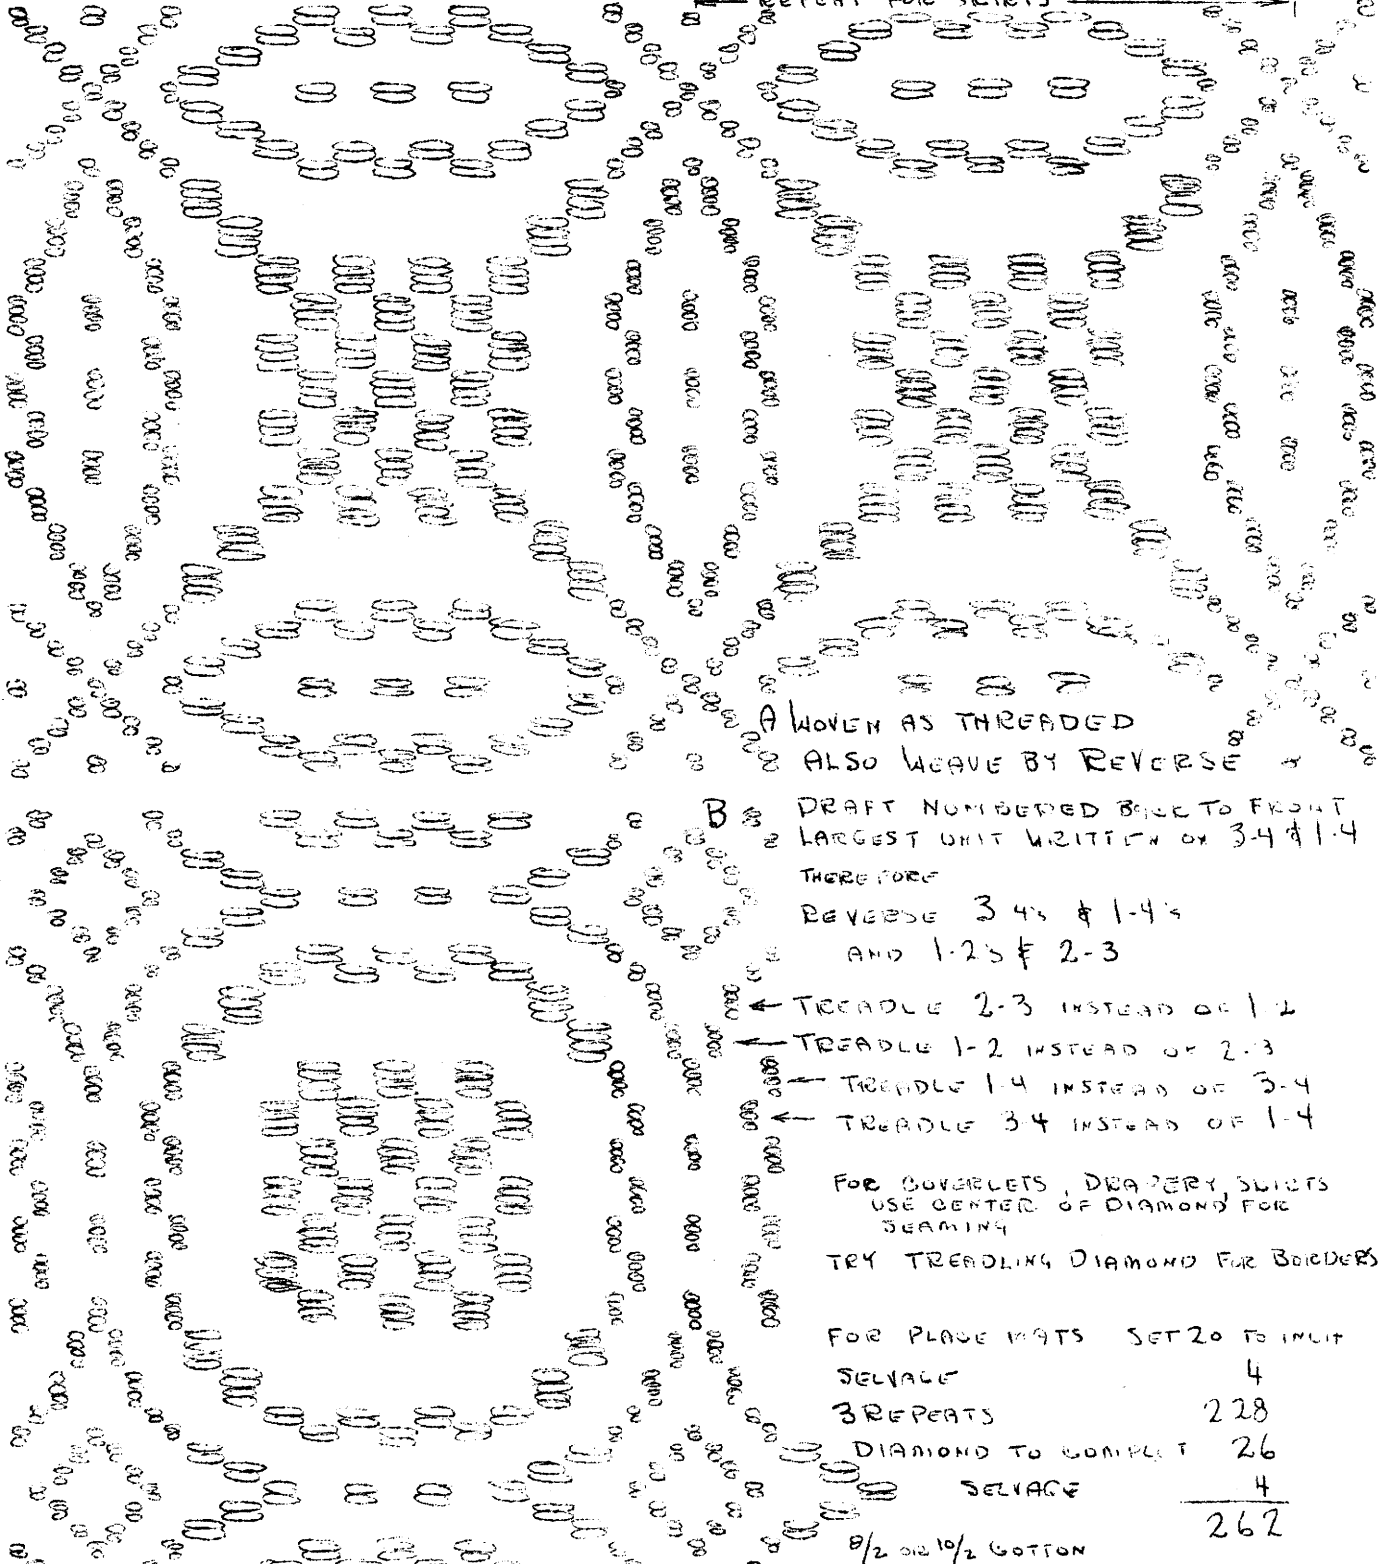 REPEAT FOR SKIRTS
A WOVEN AS THREADED
ALSO WEAVE BY REVERSE
B DRAFT NUMBERED BACK TO FRONT
LARGEST UNIT WRITTEN ON 3-4 & 1-4
THEREFORE
REVERSE 3 4's & 1-4's
AND 1-2's & 2-3
← TREADLE 2-3 INSTEAD OF 1 2
← TREADLE 1-2 INSTEAD OF 2-3
← TREADLE 1-4 INSTEAD OF 3-4
← TREADLE 3-4 INSTEAD OF 1-4
FOR COVERLETS, DRAPERY, SKIRTS
USE CENTER OF DIAMOND FOR
SEAMING
TRY TREADLING DIAMOND FOR BORDERS
FOR PLACE MATS SET 20 TO INCH
SELVAGE 4
3 REPEATS 228
DIAMOND TO COMPLET 26
SELVAGE 4
262
8/2 OR 10/2 COTTON